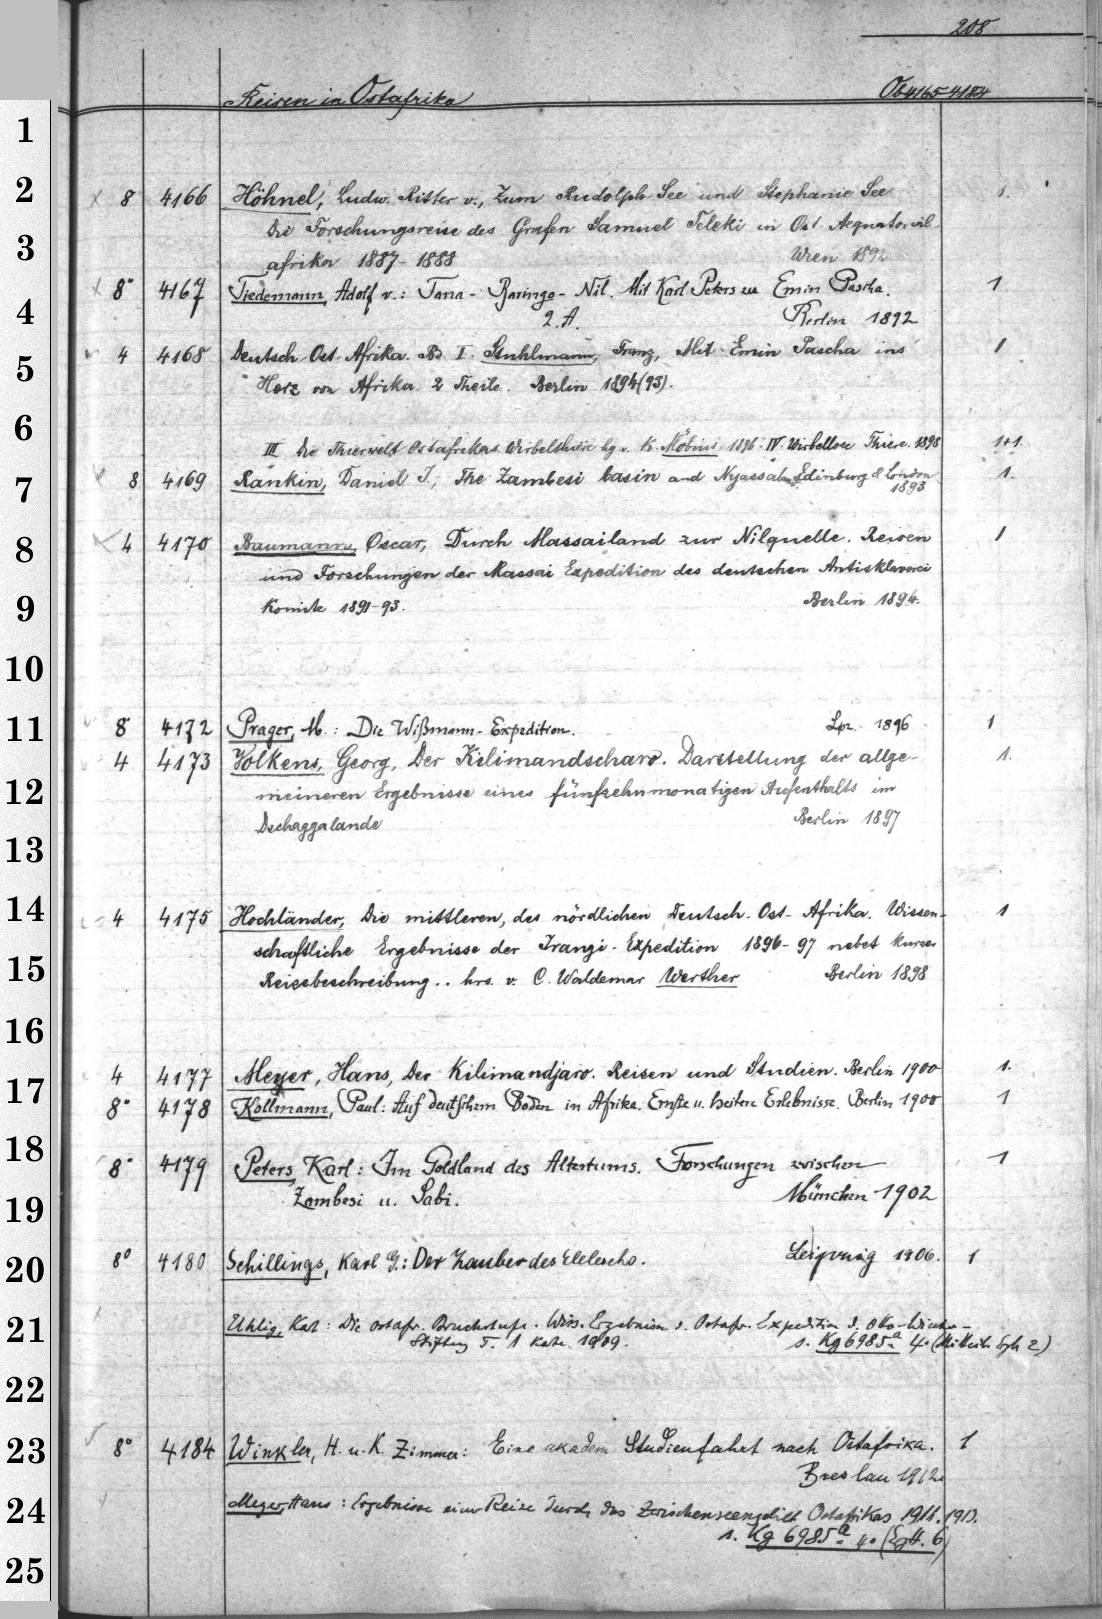 208
Reisen in Ostafrika Ob 4165-4184
1
2
3
4
5
6
7
8
9
10
11
12
13
14
15
16
17
18
19
20
21
22
23
24
25
8 4166 Höhnel, Ludw. Ritter v., Zum Rudolph-See und Stephanie See 1.
Die Forschungsreise des Grafen Samuel Teleki in Ost-Aequatorial-
afrika 1887-1888 Wien 1892
8° 4167 Tiedemann, Adolf v.: Tana-Baringo-Nil. Mit Karl Peters zu Emin Pascha. 1
2.A. Berlin 1892
4 4168 Deutsch-Ost-Afrika. Bd I. Stuhlmann, Franz, Mit Emin Pascha ins 1
Herz von Afrika 2 Theile. Berlin 1894(93).
III Die Thierwelt Ostafrikas. Wirbelthiere hg. v. K. Möbius. 1896. IV. Wirbellose Thiere. 1898 1+1.
8 4169 Rankin, Daniel J., The Zambesi basin and Nyassaland. Edinburg & London 1.
1893
4 4170 Baumann, Oscar, Durch Massailand zur Nilquelle. Reisen 1
und Forschungen der Massai Expedition des deutschen Antisklaverei
Komite 1891-93. Berlin 1894.
8 4172 Prager, M.: Die Wißmann-Expedition. Lpz. 1896 1
4 4173 Volkens, Georg, Der Kilimandscharo. Darstellung der allge- 1.
meineren Ergebnisse eines fünfzehnmonatigen Aufenthalts im
Dschaggalande Berlin 1897
4 4175 Hochländer, Die mittleren, des nördlichen Deutsch-Ost-Afrika. Wissen- 1
schaftliche Ergebnisse der Irangi-Expedition 1896-97 nebst kurzer
Reisebeschreibung.. hrs. v. C. Waldemar Werther Berlin 1898
4 4177 Meyer, Hans, Der Kilimandjaro. Reisen und Studien. Berlin 1900 1.
8° 4178 Kollmann, Paul: Auf deutschem Boden in Afrika. Ernste u. heitere Erlebnisse. Berlin 1900 1
8° 4179 Peters, Karl: Im Goldland des Altertums. Forschungen zwischen 1
Zambesi u. Sabi. München 1902
8° 4180 Schillings, Karl G.: Der Zauber des Elelescho. Leipzig 1906. 1
Uhlig, Karl: Die ostafr. Bruchstufe. Wiss. Ergebnisse d. Ostafr. Expedition d. Otto-Winter-
Stiftung T. 1 Karte 1909. s. Kg 6985ª 4° (Mitteil. Egh 2)
8° 4184 Winkler, H. u. K. Zimmer: Eine akadem Studienfahrt nach Ostafrika. 1
Breslau 1912
Meyer, Hans: Ergebnisse einer Reise durch das Zwischenseengebiet Ostafrikas 1911. 1913.
s. Kg 6985ª 4° (Egh. 6)